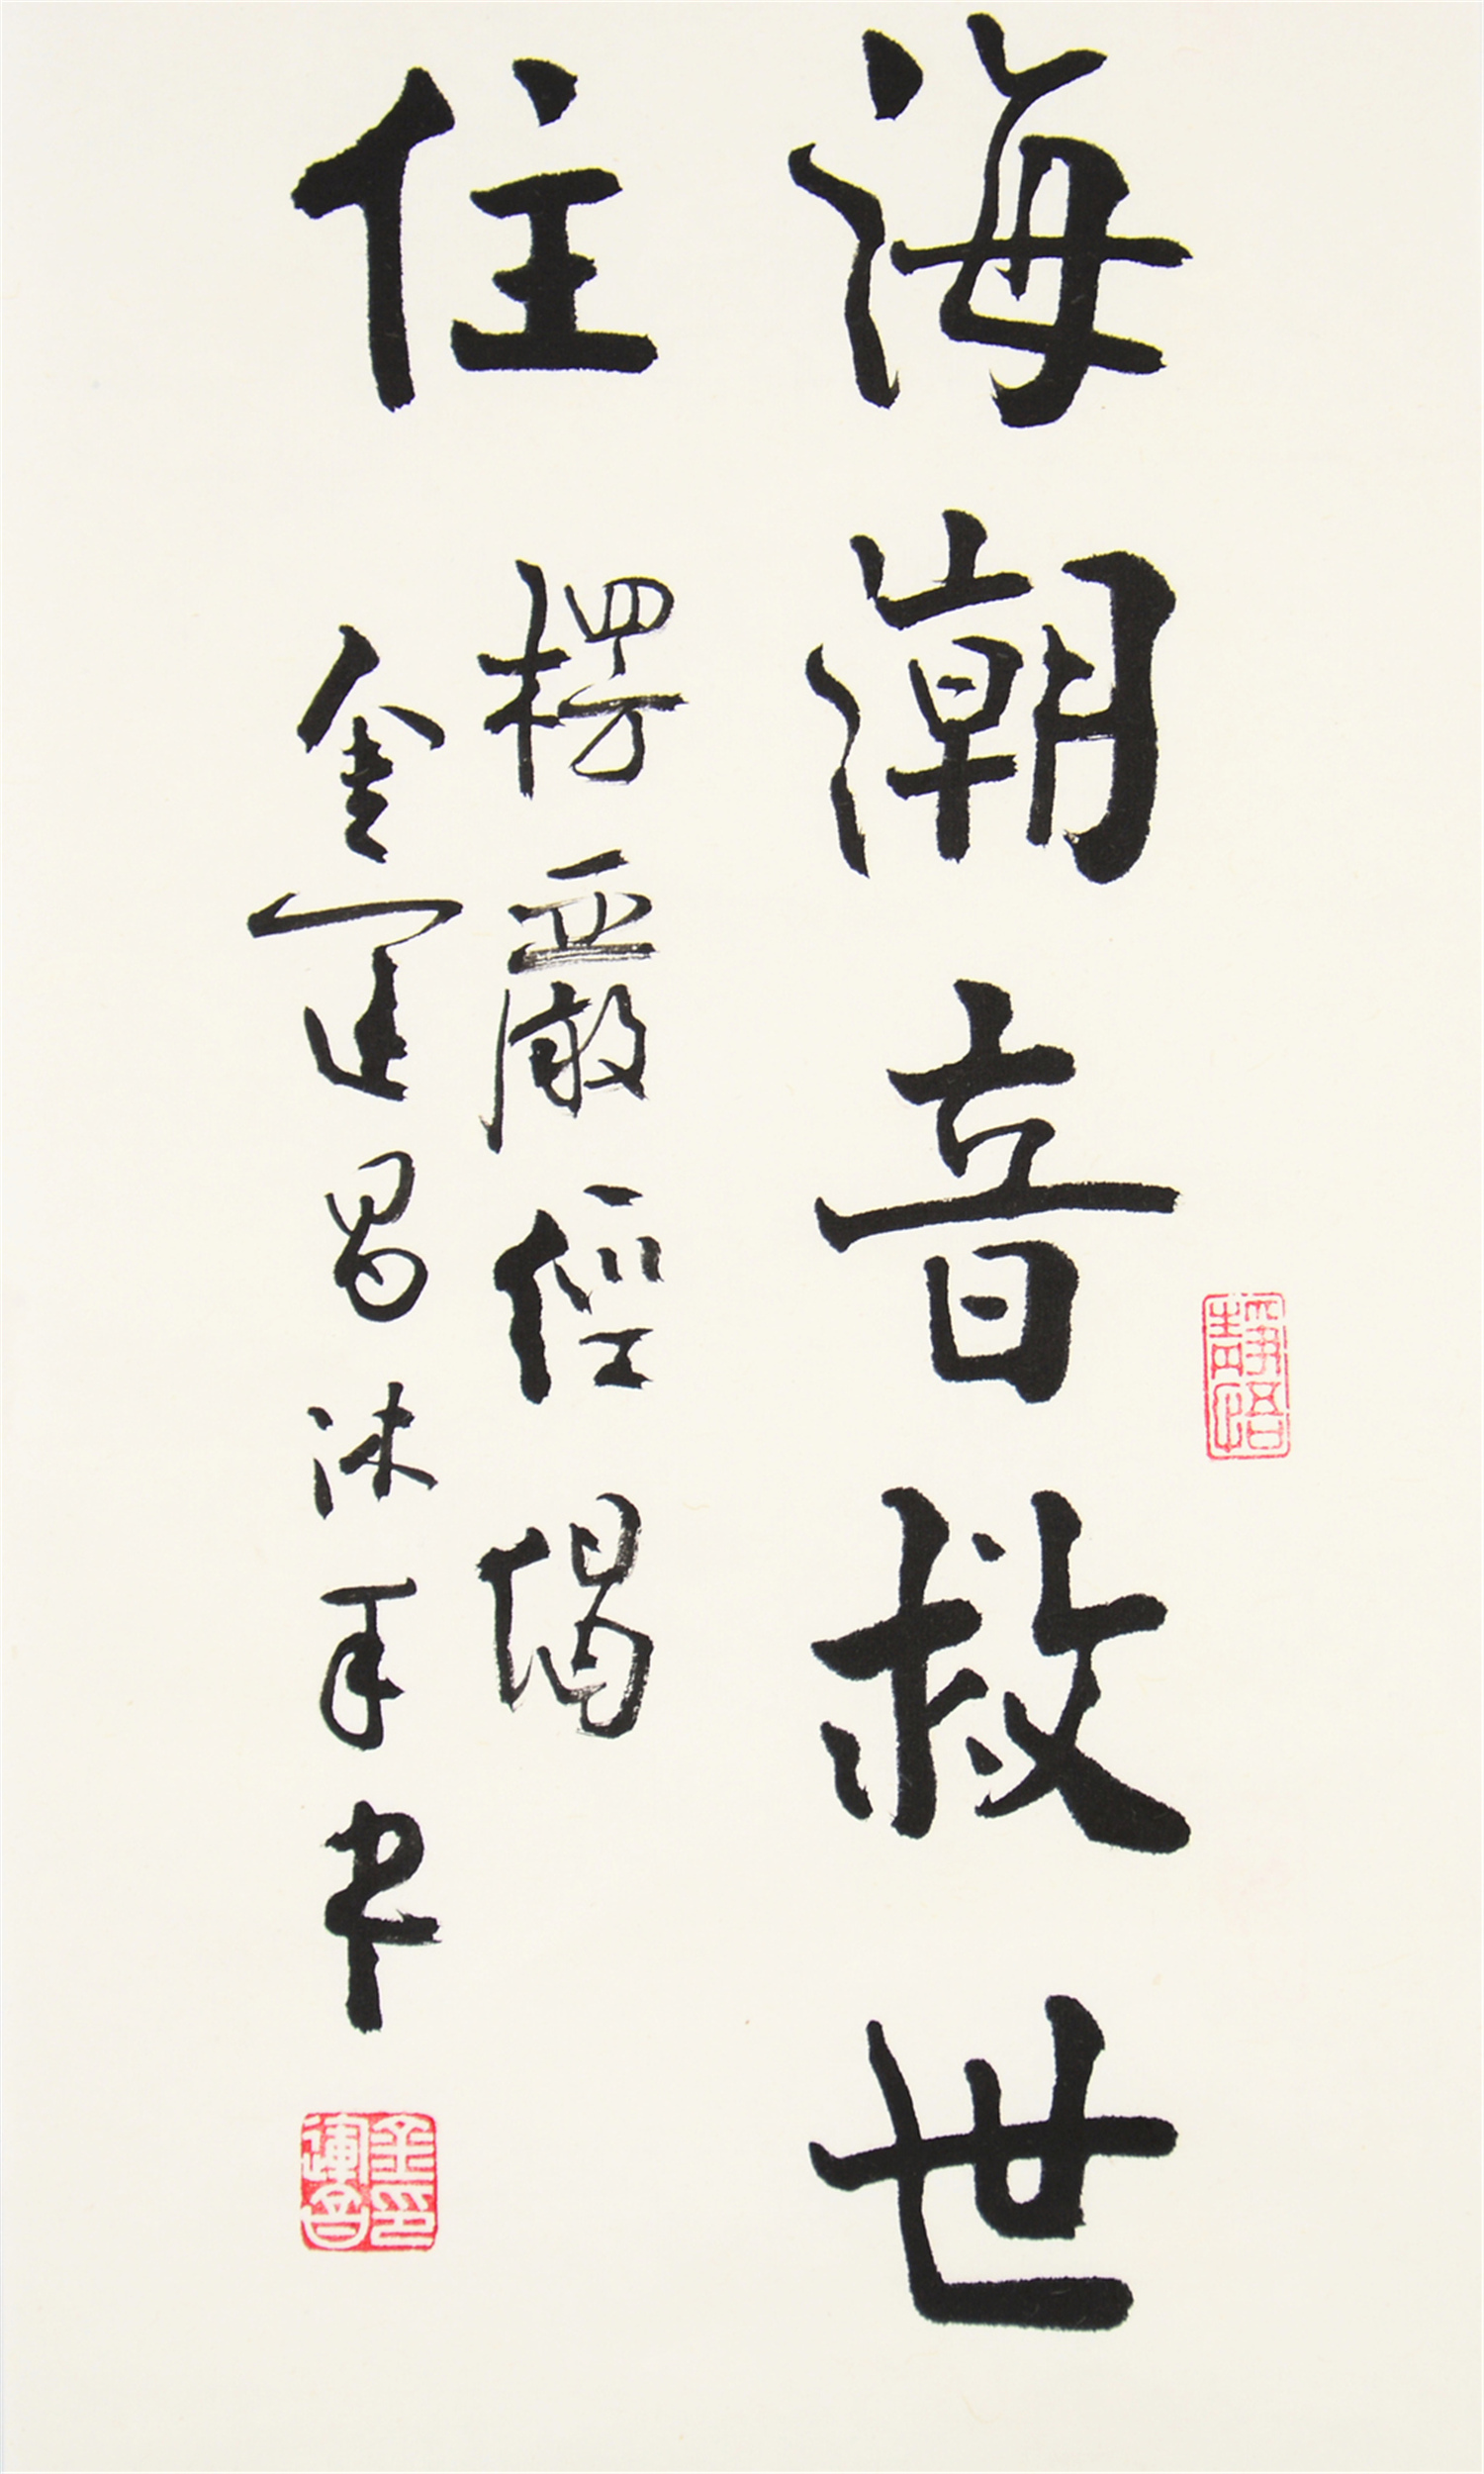 海潮音救世
住
楞嚴經偈
金運昌沐手書
靜悟
金運昌印